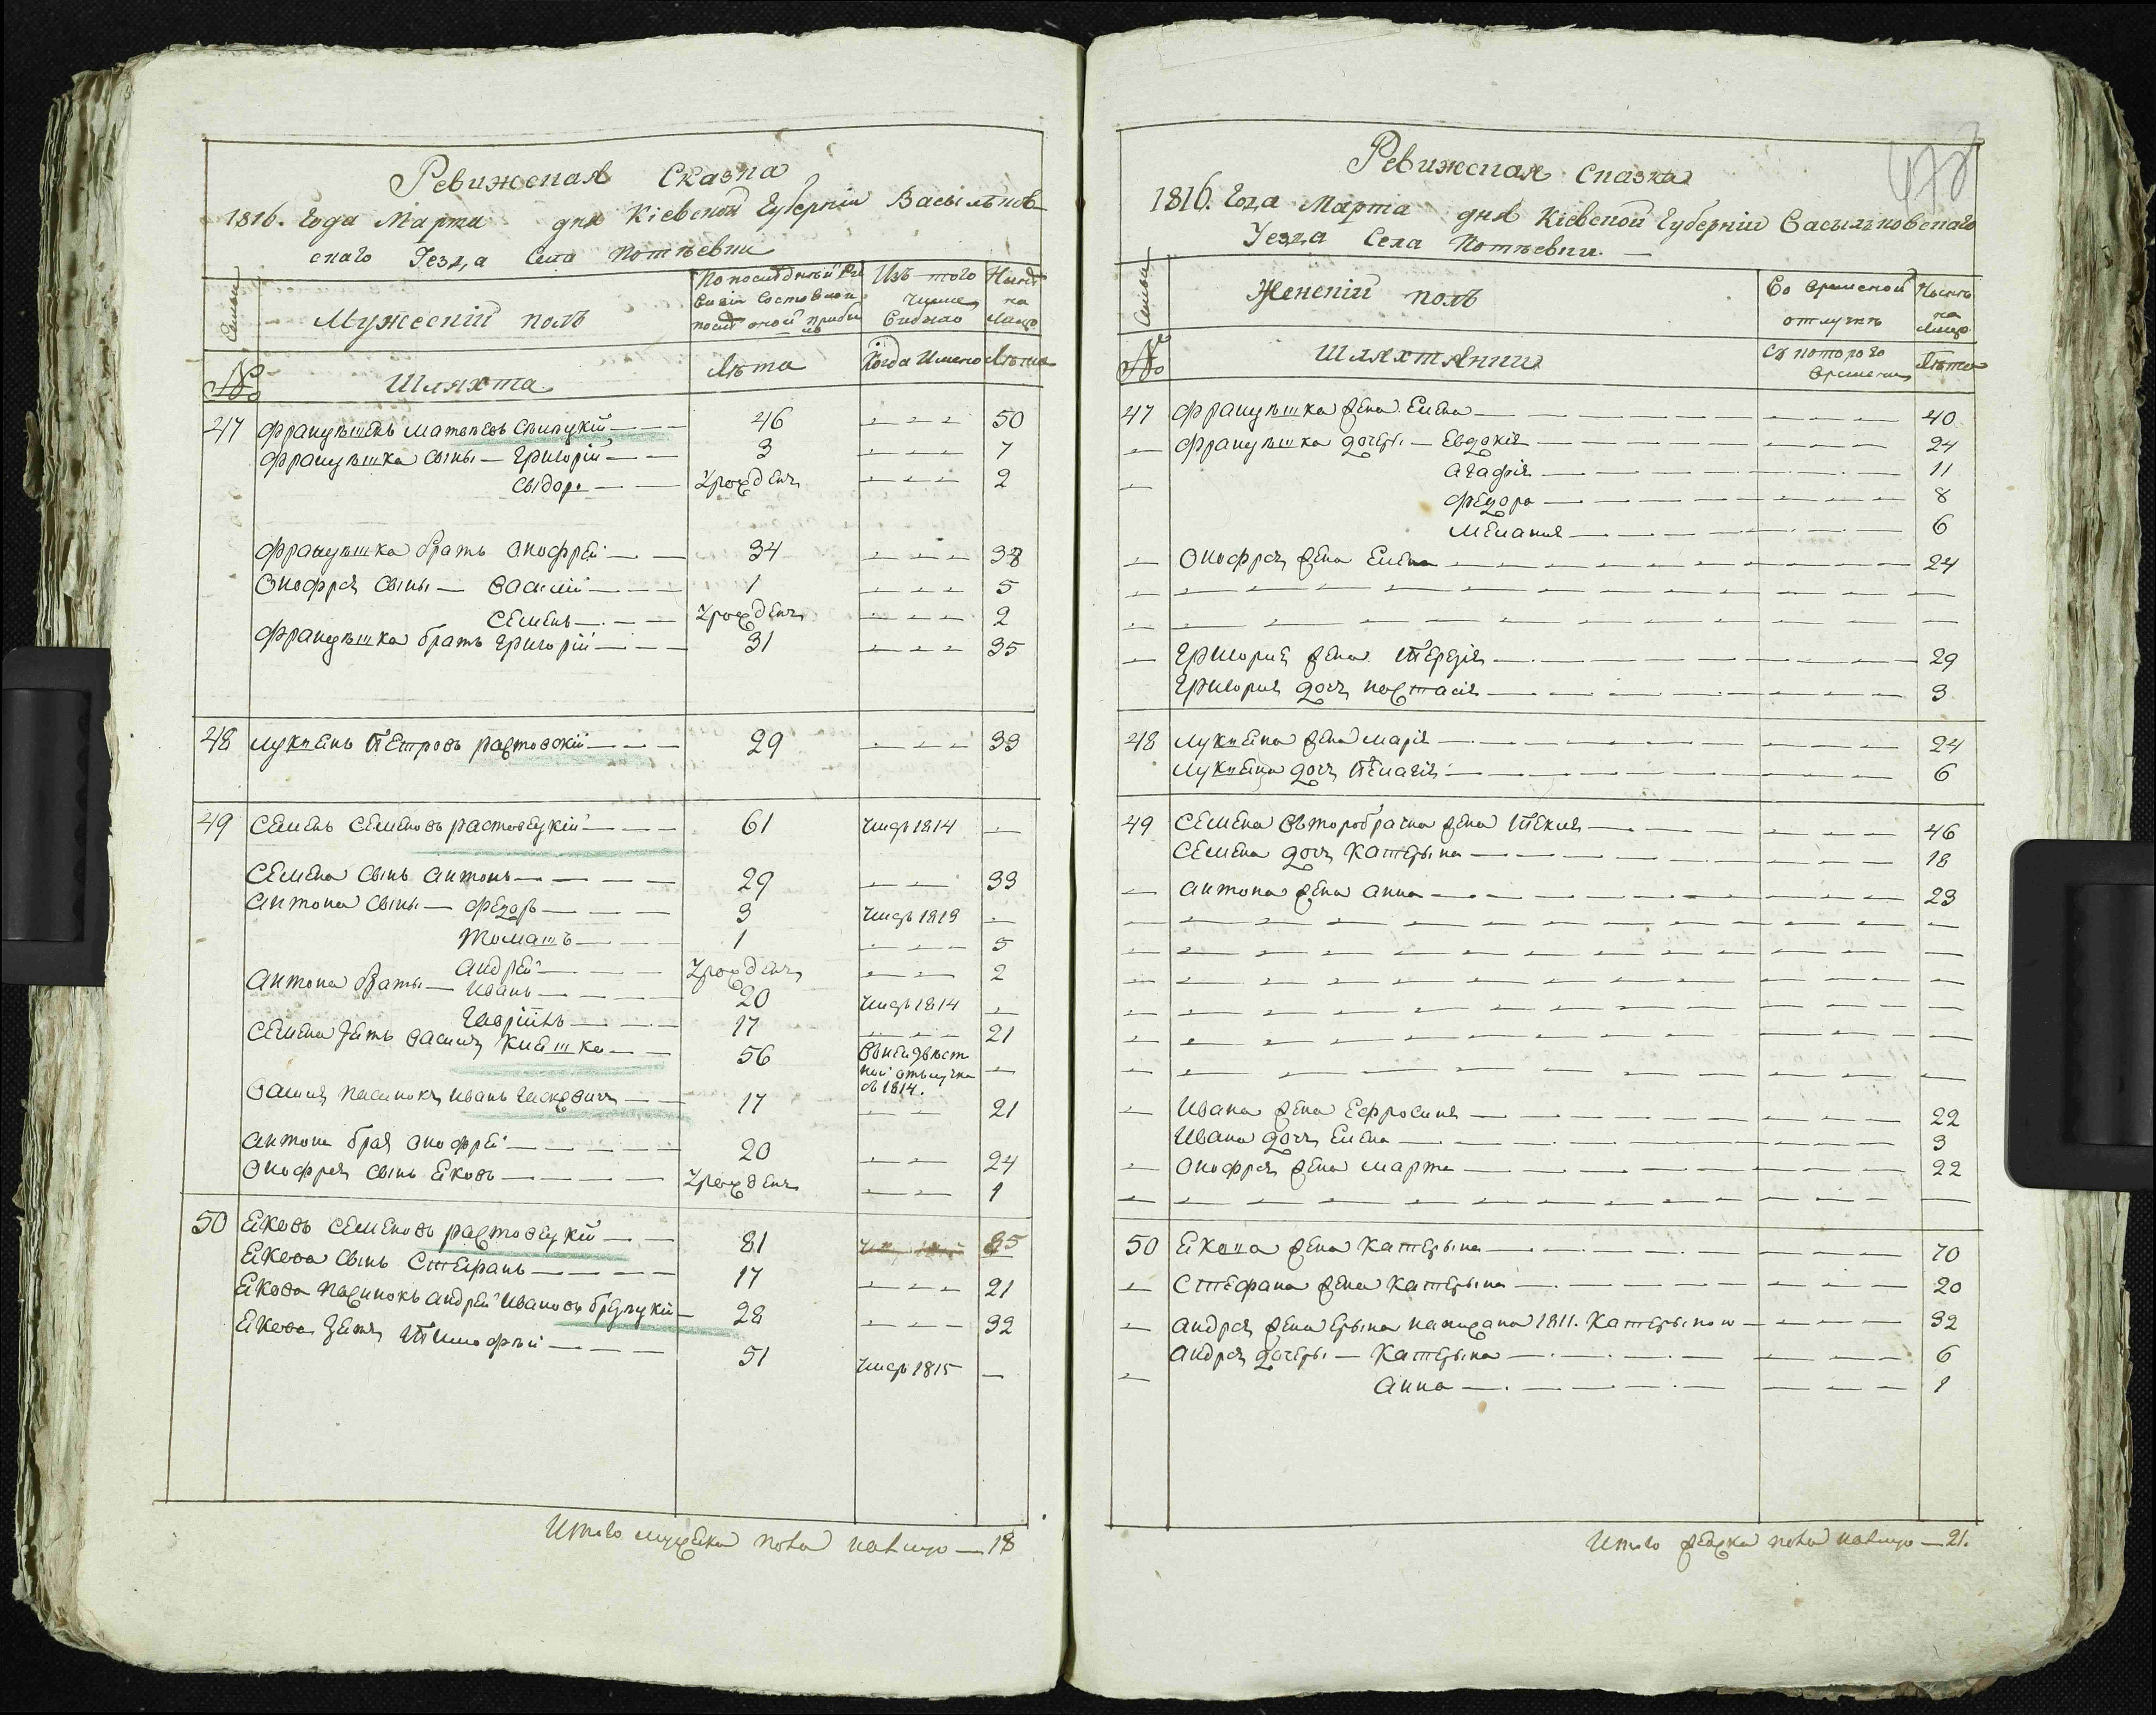 Ревижская Сказка
1816. Года Марта дня Кіевской Губерніи Васильков-
скаго Уезда Села Потѣевки
Семьи
Мужескій полъ
По последней Ре
визіи Состояло и
после оной прибы
ло
Изъ того
Числа
Выбыло
Нынѣ
на
Лицо
№
Шляхта
Лѣта
Когда Имено
Лѣта
47 Францѣшекъ Матвѣевъ 46 50
Францѣшка Сыны — Григорій 3 7
Сыдоръ Урожденъ 2
Францѣшка братъ Онофрей 34 38
Онофрея Сыны — Василій 1 5
Семенъ Урожденъ 2
Францѣшка братъ Григорій 31 35
48 Лукіянъ Петровъ 29 33
49 Семенъ Семеновъ Растовецкій 61 Умеръ 1814 —
Семена Сынъ Антонъ 29 33
Антона Сыны — Федоръ 3 Умеръ 1813 —
Томашъ 1 5
Андрей Урожденъ 2
Антона браты — Иванъ 20 Умеръ 1814 —
17 21
Семена Зять Василь 56 Въ неизвѣст
ной отлучке
съ 1814. —
Василя Пасинокъ Иванъ 17 21
Антона братъ Онофрей 20 24
Онофрея Сынъ Яковъ Урожденъ 1
50 Яковъ Семеновъ Растовецкій 81 85
Якова Сынъ Стефанъ 17 21
Якова Пасинокъ Андрей Ивановъ 28 32
Якова Зять Тимофѣй 51 Умеръ 1815 —
Итого мужеска пола налицо — 18
478
Ревижская Сказка
1816. Года Марта дня Кіевской Губерніи Васильковскаго
Уезда Села Потѣевки. —
Семьи
Женскій полъ
Во временной
отлучкѣ
Нынѣ
на
Лицо
№
Шляхтянки
Съ которого
времени
Лѣта
47 Францѣшка жена Елена 40
— Францѣшка дочеры — Евдокія 24
— Агафія 11
Федора 8
Меланія 6
— Онофрея жена Елена 24
— Григорія жена Терезія 29
Григорія дочь Настасія 3
48 Лукіяна жена Марія 24
Лукіяна дочь Пелагія 6
49 Семена Второбрачна жена Текля 46
Семена дочь Катерына 18
— Антона жена Анна 23
— Ивана жена Ефросиня 22
Ивана дочь Елена 3
— Онофрея жена Марта 22
50 Якова жена Катерына 70
— Стефана жена Катерына 20
— Андрея жена 1811. Катерыною 32
Андрея дочеры — Катерына 6
— Анна 1
Итого женска пола налицо — 21.